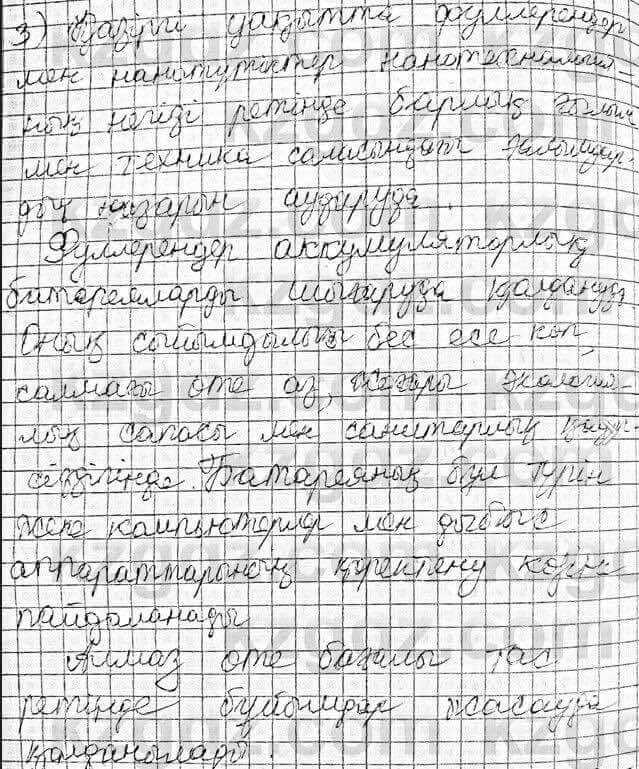 3) Қазіргі уақытта фуллерендер
мен нанотүтіктер нанотехнология-
ның негізі ретінде барлық ғылым
мен техника саласындағы ғалымдар-
дың назарын аударуда.
Фуллерендер аккумуляторлық
батареяларды шығаруда қолдануда
Оның сыйымдылығы бес есе көп,
салмағы өте аз, жоғары экология-
лық сапасы мен санитарлық қауіп-
сіздігінде. Батареяның бұл түрін
жеке компьютерлер мен дыбыс
аппараттарының қоректену көзіне
пайдаланады
Алмаз өте бағалы тас
ретінде бұйымдар жасауда
қолданылады.